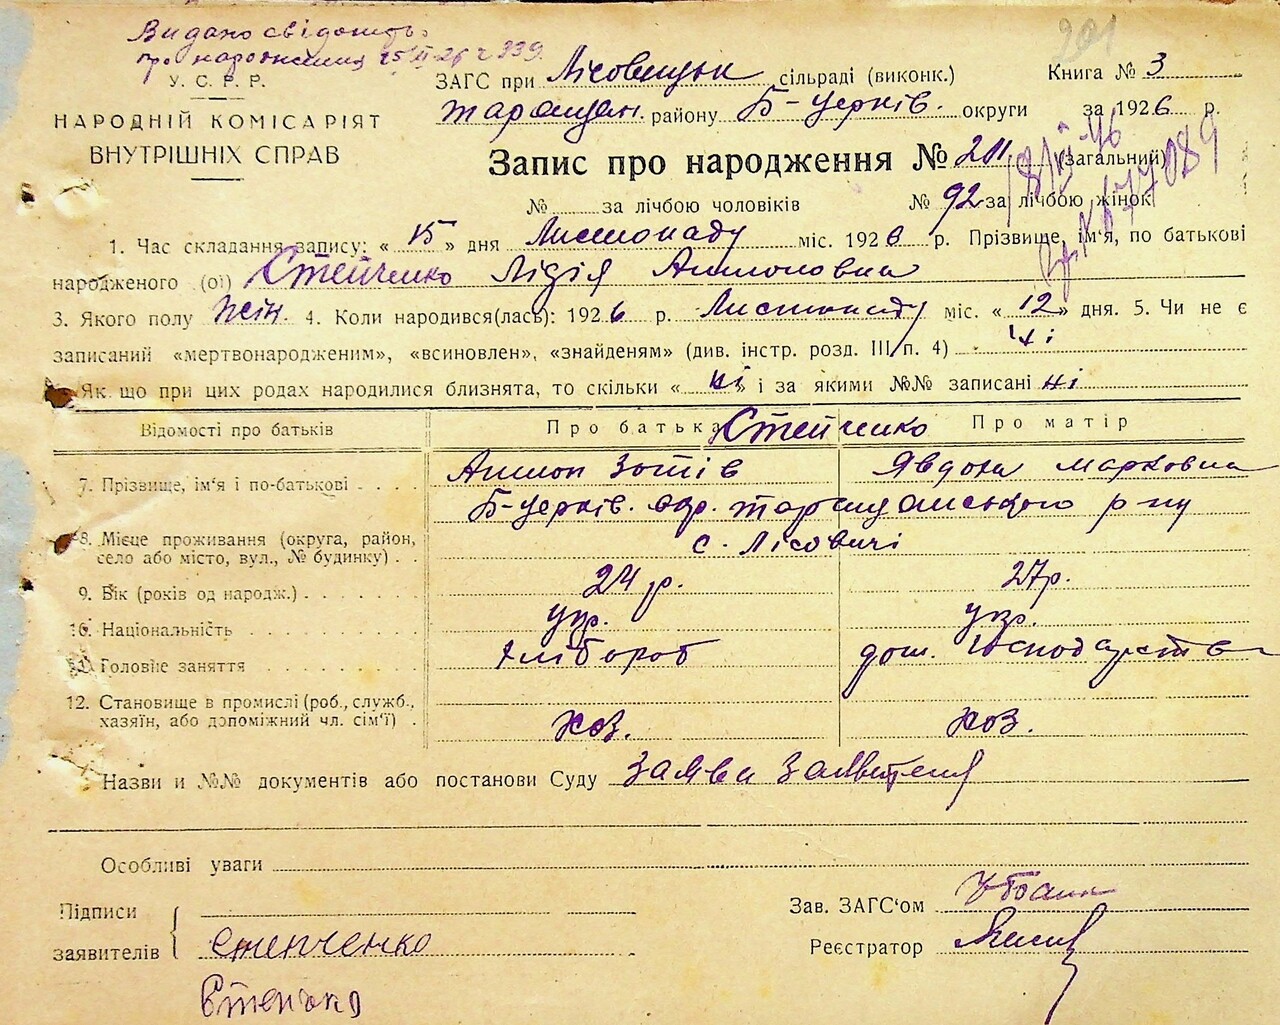 Видано свідоцтво
201
про народження 25/XI-26 г. 339.
У.С.Р.Р.
НАРОДНІЙ КОМІСАРІЯТ
ВНУТРІШНІХ СПРАВ
ЗАГС при Лісовицьк сільраді (виконк.) Книга № 3
таращан. району Б-церків. округи за 1926 р.
Запис про народження № 201 (загальний)
№ за лічбою чоловіків № 92 за лічбою жінок
1. Час складання запису: « 15 » дня Листопаду міс. 1926 р. Прізвище, ім'я, по батькові
народженого (ої) Стейченко Лідія Антоновна
3. Якого полу жін. 4. Коли народився(лась): 1926 р. Листопаду міс. « 12 » дня. 5. Чи не є
записаний «мертвонародженим», «всиновлен», «знайденям» (див. інстр. розд. III п. 4) ні
Як що при цих родах народилися близнята, то скільки « ні » і за якими №№ записані ні
Відомості про батьків Про батька Стейченко Про матір
7. Прізвище, ім'я і по-батькові Антон Зотів Явдоха Марковна
8. Місце проживання (округа, район, село або місто, вул., № будинку) Б-церків. окр. таращанського р-ну
с. Лісовичі
9. Вік (років од народж.) 24 р. 27р.
10. Національність укр. укр.
11. Головне заняття хлібороб дом. господарство
12. Становище в промислі (роб., служб.,
хазяїн, або допоміжний чл. сім'ї) хоз. хоз.
Назви и №№ документів або постанови Суду Заява заявителя
Особливі уваги
Підписи
заявителів стенченко
Зав. ЗАГС'ом
Реєстратор